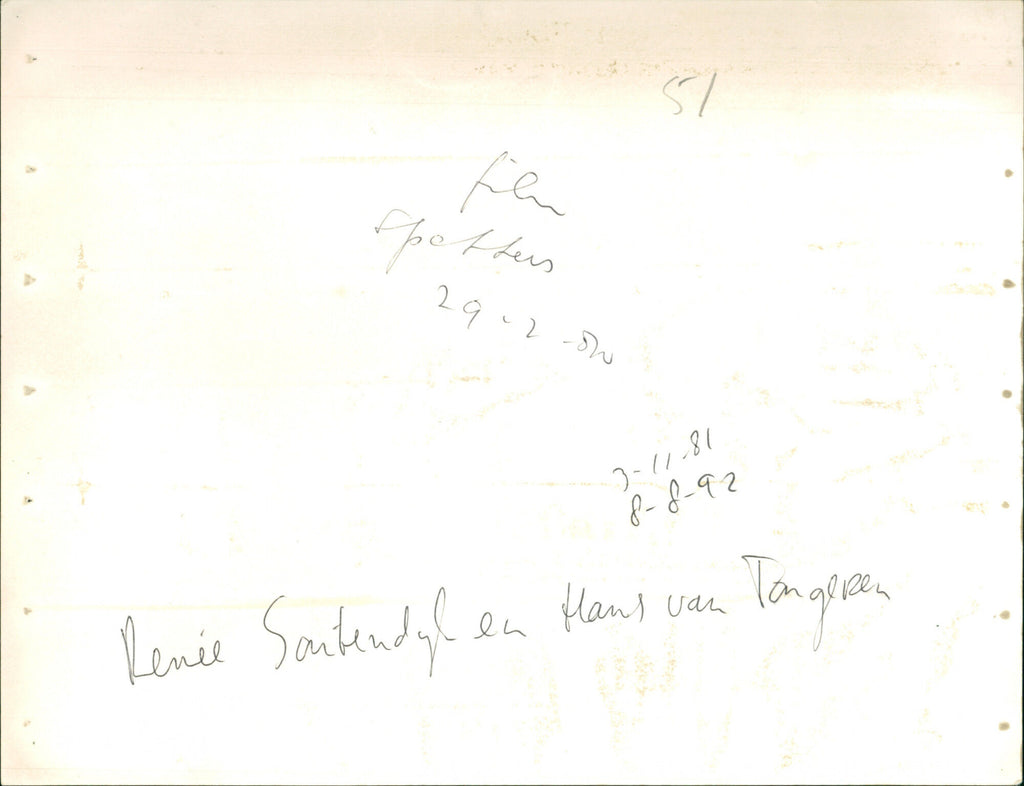 51
film
Spetters
29-2-80
3-11-81
8-8-92
Renée Soutendyk en Hans van Tongeren